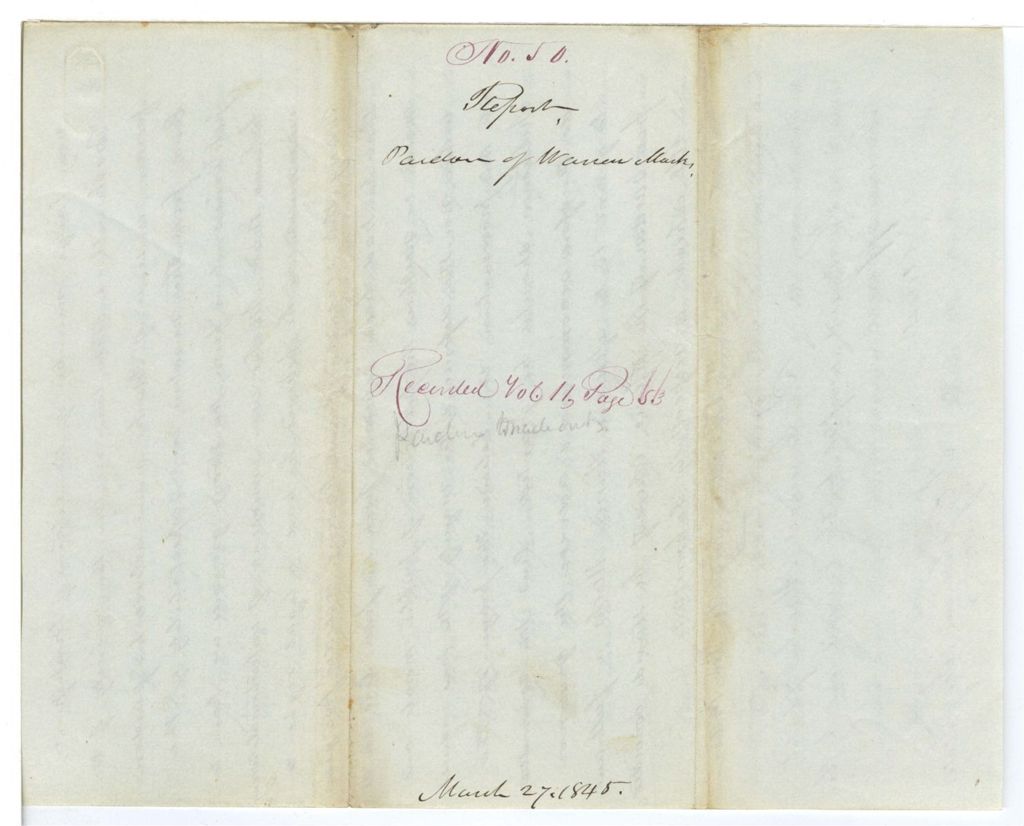 No. 50.
Report,
Pardon of Warren Mark,
Recorded Vol 11, Page 53
Pardon made out
March 27. 1845.